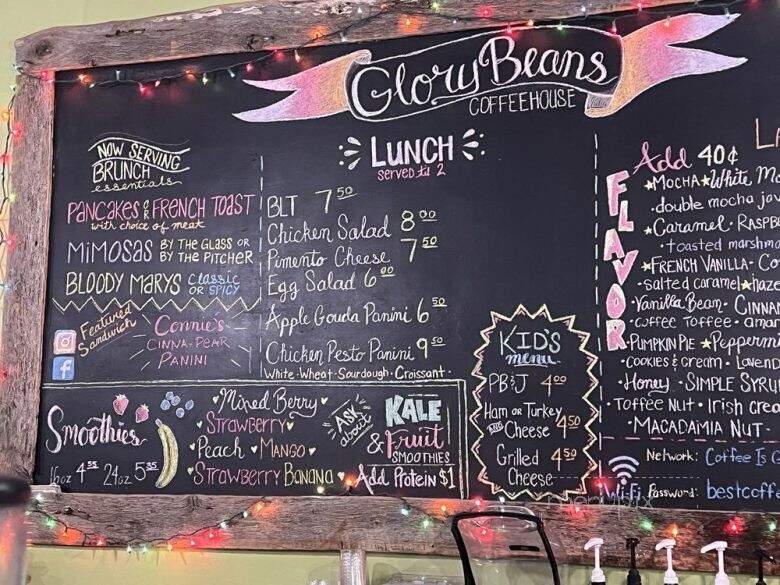 Glory Beans
COFFEEHOUSE
NOW SERVING
BRUNCH
essentials
PANCAKES OR FRENCH TOAST
with choice of meat
MIMOSAS BY THE GLASS OR
BY THE PITCHER
BLOODY MARYS Classic
OR SPICY
Featured
Sandwich
Connie's
CINNA-PEAR
PANINI
LUNCH
served til 2
BLT 7.50
Chicken Salad 8.00
Pimento Cheese 7.50
Egg Salad 6.00
Apple Gouda Panini 6.50
Chicken Pesto Panini 9.50
White · Wheat · Sourdough · Croissant
Smoothies
16oz 4.35 24oz 5.35
Mixed Berry
Strawberry
Peach Mango
Strawberry Banana
ASK
about
KALE
& Fruit
SMOOTHIES
Add Protein $1
KID'S
menu
PB&J 4.00
Ham or Turkey
AND Cheese 4.50
Grilled 4.50
Cheese
FLAVOR
Add 40¢
MOCHA White
double mocha
Caramel
toasted
FRENCH VANILLA
salted caramel
Vanilla Bean
coffee toffee
PUMPKIN PIE
cookies & cream
Honey · SIMPLE
TOFFEE NUT · Irish
MACADAMIA NUT
Network: Coffee Is
Wifi Password: